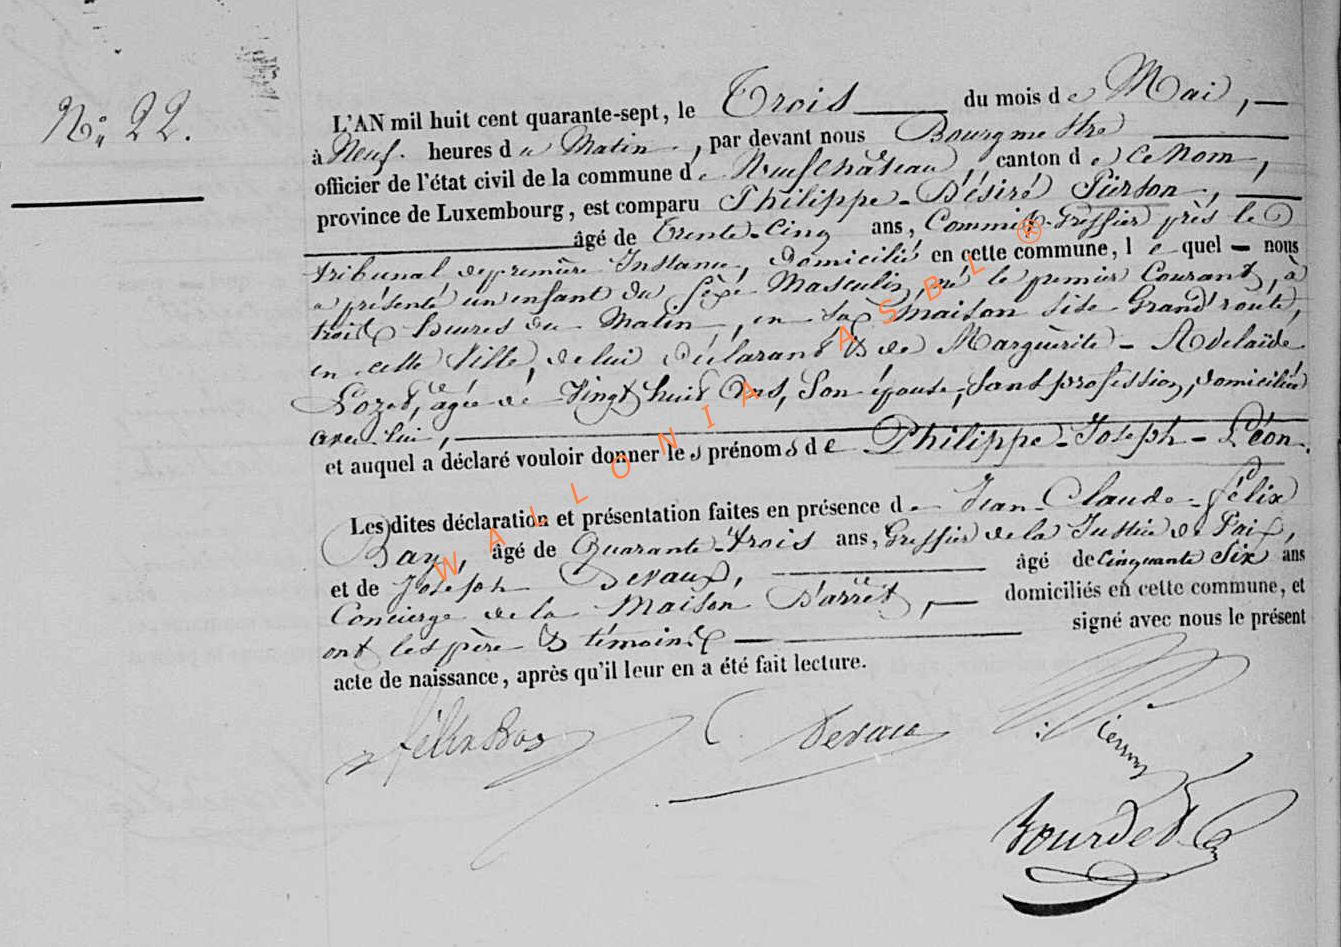 N°. 22.
L'AN mil huit cent quarante-sept, le Trois du mois de Mai,
à Neuf heures du Matin, par devant nous Bourgmestre
officier de l'état civil de la commune de Neufchâteau, canton de ce Nom,
province de Luxembourg, est comparu Philippe-Désiré Pierson,
âgé de trente-cinq ans, Commis-Greffier près le
tribunal de première Instance, domicilié en cette commune, lequel nous
a présenté un enfant du sexe Masculin, né le premier Courant, à
trois heures du Matin, en sa maison sise Grand'route,
en cette Ville, de lui Déclarant & de Marguerite-Adelaïde
Lozet, âgée de Vingt huit Ans, Son épouse, Sans profession, domiciliée
avec lui,
et auquel a déclaré vouloir donner les prénoms de Philippe-Joseph-Léon.
Lesdites déclaration et présentation faites en présence de Jean-Claude-Félix
âgé de Quarante-trois ans, Greffier de la Justice de Paix,
et de Joseph Devaux, âgé de Cinquante Six ans
Concierge de la Maison D'arrêt, domiciliés en cette commune, et
ont les père & témoins signé avec nous le présent
acte de naissance, après qu'il leur en a été fait lecture.
Devaux
Pierson
WALLONIA ASBL ®